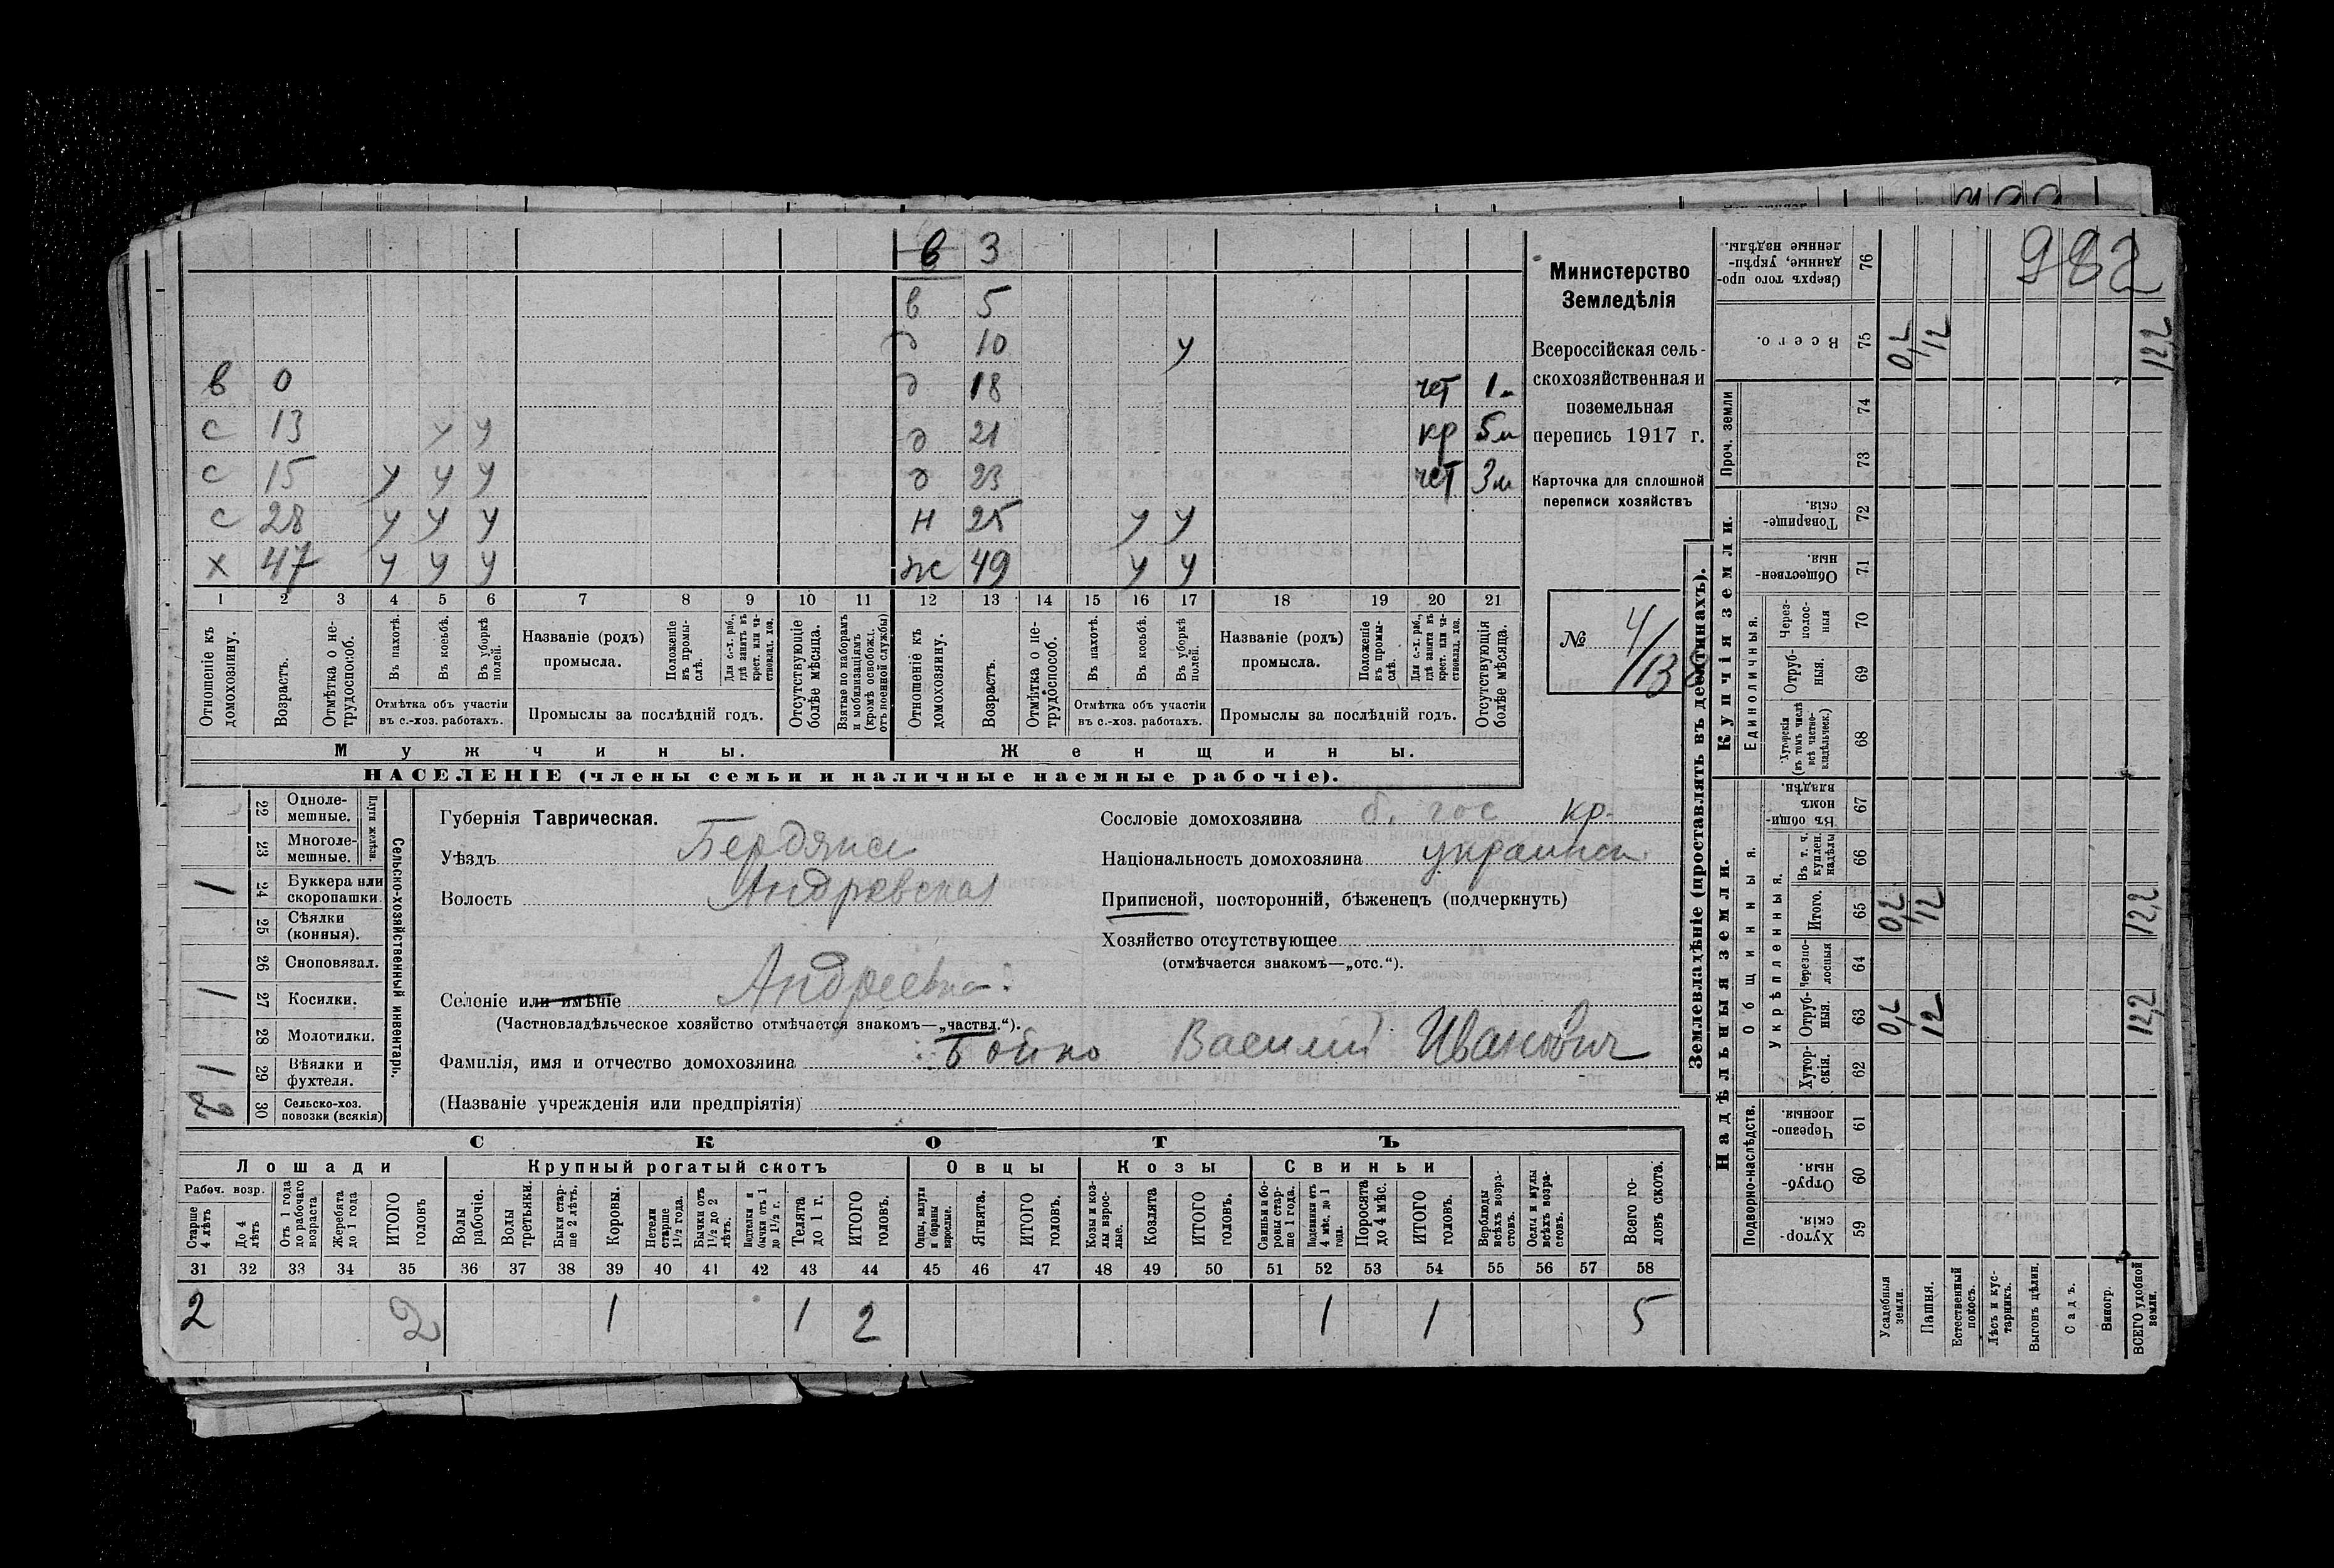 982
в 3
в 5
д 10 у
в 0 д 18 чет 1м
с 13 у у д 21 кр 5м
с 15 у у у д 23 чет 3м
с 28 у у у н 25 у у
х 47 у у у ж 49 у у
1 2 3 4 5 6 7 8 9 10 11 12 13 14 15 16 17 18 19 20 21
Отношеніе къ домохозяину.
Возрастъ.
Отмѣтка о нетрудоспособ.
Въ пахотѣ.
Въ косьбѣ.
Въ уборкѣ полей.
Отмѣтка объ участіи въ с.-хоз. работахъ.
Названіе (родъ) промысла.
Положеніе въ промыслѣ.
Для с.-х. раб., гдѣ занятъ въ крест. или частновлад. хоз.
Промыслы за послѣдній годъ.
Отсутствующіе болѣе мѣсяца.
Взятые по наборамъ и мобилизаціямъ (кромѣ освобожд. отъ военной службы)
Отношеніе къ домохозяину.
Возрастъ.
Отмѣтка о нетрудоспособ.
Въ пахотѣ.
Въ косьбѣ.
Въ уборкѣ полей.
Отмѣтка объ участіи въ с.-хоз. работахъ.
Названіе (родъ) промысла.
Положеніе въ промыслѣ.
Для с.-х. раб., гдѣ занята въ крест. или частновлад. хоз.
Промыслы за послѣдній годъ.
Отсутствующія болѣе мѣсяца.
Мужчины.
Женщины.
НАСЕЛЕНІЕ (члены семьи и наличные наемные рабочіе).
Министерство
Земледѣлія
Всероссійская сель-
скохозяйственная и
поземельная
перепись 1917 г.
Карточка для сплошной
переписи хозяйствъ
№ 4/138
Сельско-хозяйственный инвентарь.
Плуги желѣзн.
22 Однолемешные.
23 Многолемешные.
24 Буккера или скоропашки. 1
25 Сѣялки (конныя).
26 Сноповязал.
27 Косилки. 1
28 Молотилки.
29 Вѣялки и фухтеля. 1
30 Сельско-хоз. повозки (всякія) 2
Губернія Таврическая.
Уѣздъ Бердянск
Волость Андровская
Селеніе или имѣніе Андреевка
(Частновладѣльческое хозяйство отмѣчается знакомъ—„частвл.“).
Фамилія, имя и отчество домохозяина Бойко Василий Иванович
(Названіе учрежденія или предпріятія)
Сословіе домохозяина б. гос кр.
Національность домохозяина украинск.
Приписной, посторонній, бѣженецъ (подчеркнуть)
Хозяйство отсутствующее
(отмѣчается знакомъ—„отс.“).
СКОТЪ
Лошади
Крупный рогатый скотъ
Овцы
Козы
Свиньи
Рабоч. возр.
Старше 4 лѣтъ
До 4 лѣтъ
Отъ 1 года до рабочаго возраста
Жеребята до 1 года
ИТОГО головъ
Волы рабочіе.
Волы третьяки.
Быки старше 2 лѣтъ.
Коровы.
Нетели старше 1½ года.
Бычки отъ 1½ до 2 лѣтъ.
Подтелки и бычки отъ 1 до 1½ г.
Телята до 1 г.
ИТОГО головъ.
Овцы, валухи и бараны взрослые.
Ягнята.
ИТОГО головъ.
Козы и козлы взрослые.
Козлята
ИТОГО головъ.
Свиньи и боровы старше 1 года.
Подсвинки отъ 4 мѣс. до 1 года.
Поросята до 4 мѣс.
ИТОГО головъ.
Верблюды всѣхъ возрастовъ.
Ослы и мулы всѣхъ возрастовъ.
Всего головъ скота.
31 32 33 34 35 36 37 38 39 40 41 42 43 44 45 46 47 48 49 50 51 52 53 54 55 56 57 58
2 2 1 1 2 1 1 5
Землевладѣніе (проставлять въ десятинахъ).
Надѣльныя земли.
Купчія земли.
Проч. земли
Подворно-наслѣдств.
Общинныя.
Укрѣпленныя.
Единоличныя.
76 Сверхъ того проданные, укрѣпленные надѣлы.
75 Всего. 0,2 12 12,2
74
73
72 Товарищескія.
71 Общественныя.
70 Черезполосныя
69 Отрубныя.
68 Хуторскія (въ томъ числѣ всѣ частновладѣльческ.)
67 Въ общинномъ владѣн.
66 Въ т. ч. куплен. надѣлы
65 Итого. 0,2 12 12,2
64 Черезполосныя
63 Отрубныя. 0,2 12 12,2
62 Хуторскія.
61 Черезполосныя.
60 Отрубныя.
59 Хуторскія.
Усадебныя земли.
Пашня.
Естественный покосъ.
Лѣсъ и кустарникъ.
Выгонъ цѣлин.
Садъ.
Виногр.
ВСЕГО удобной земли.